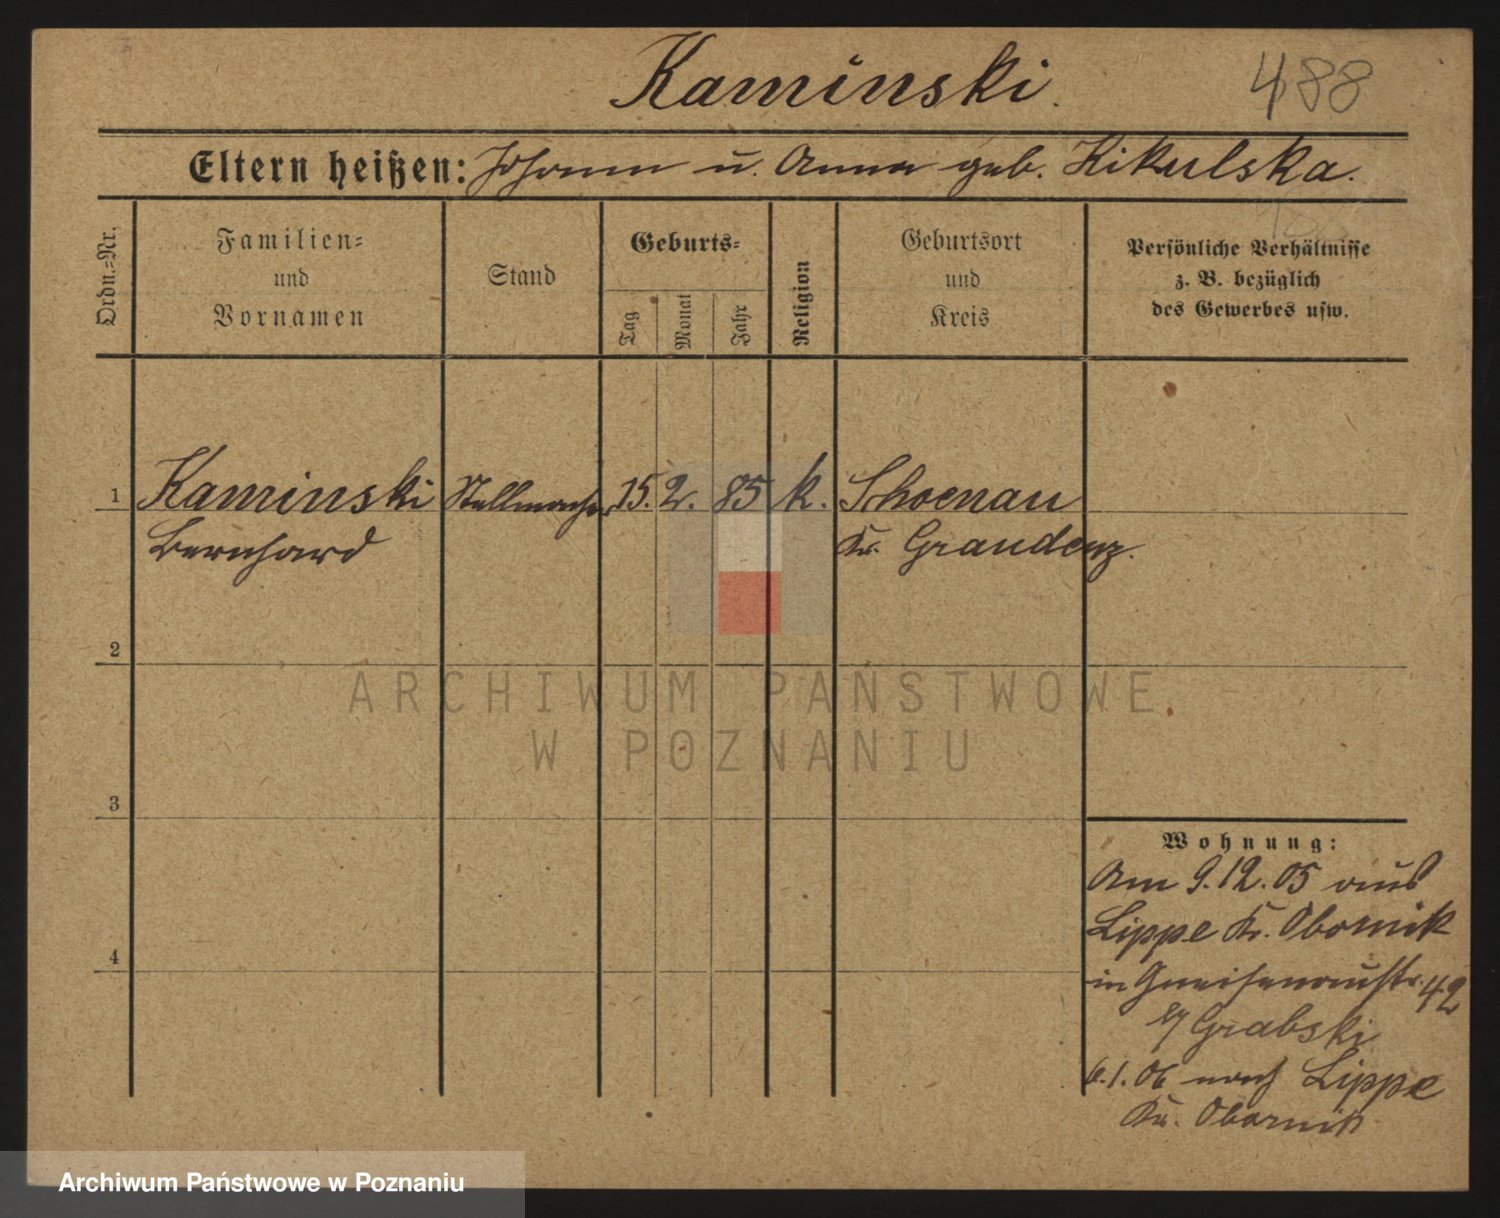 Kaminski. 488
Eltern heißen: Johann u. Anna geb. Kikulska.
Ordn.-Nr.
Familien- und Vornamen
Stand
Geburts-
Tag
Monat
Jahr
Religion
Geburtsort und Kreis
Persönliche Verhältnisse
z. B. bezüglich
des Gewerbes usw.
1 Kaminski Stellmacher 15. 2. 85 k. Schoenau
Bernhard Kr. Graudenz.
2
ARCHIWUM PAŃSTWOWE
W POZNANIU
3
Wohnung:
Am 9.12.05 aus
Lippe Kr. Obornik
4
in Gneisenaustr. 42
b/ Grabski
6.1.06 nach Lippe
Kr. Obornik
Archiwum Państwowe w Poznaniu